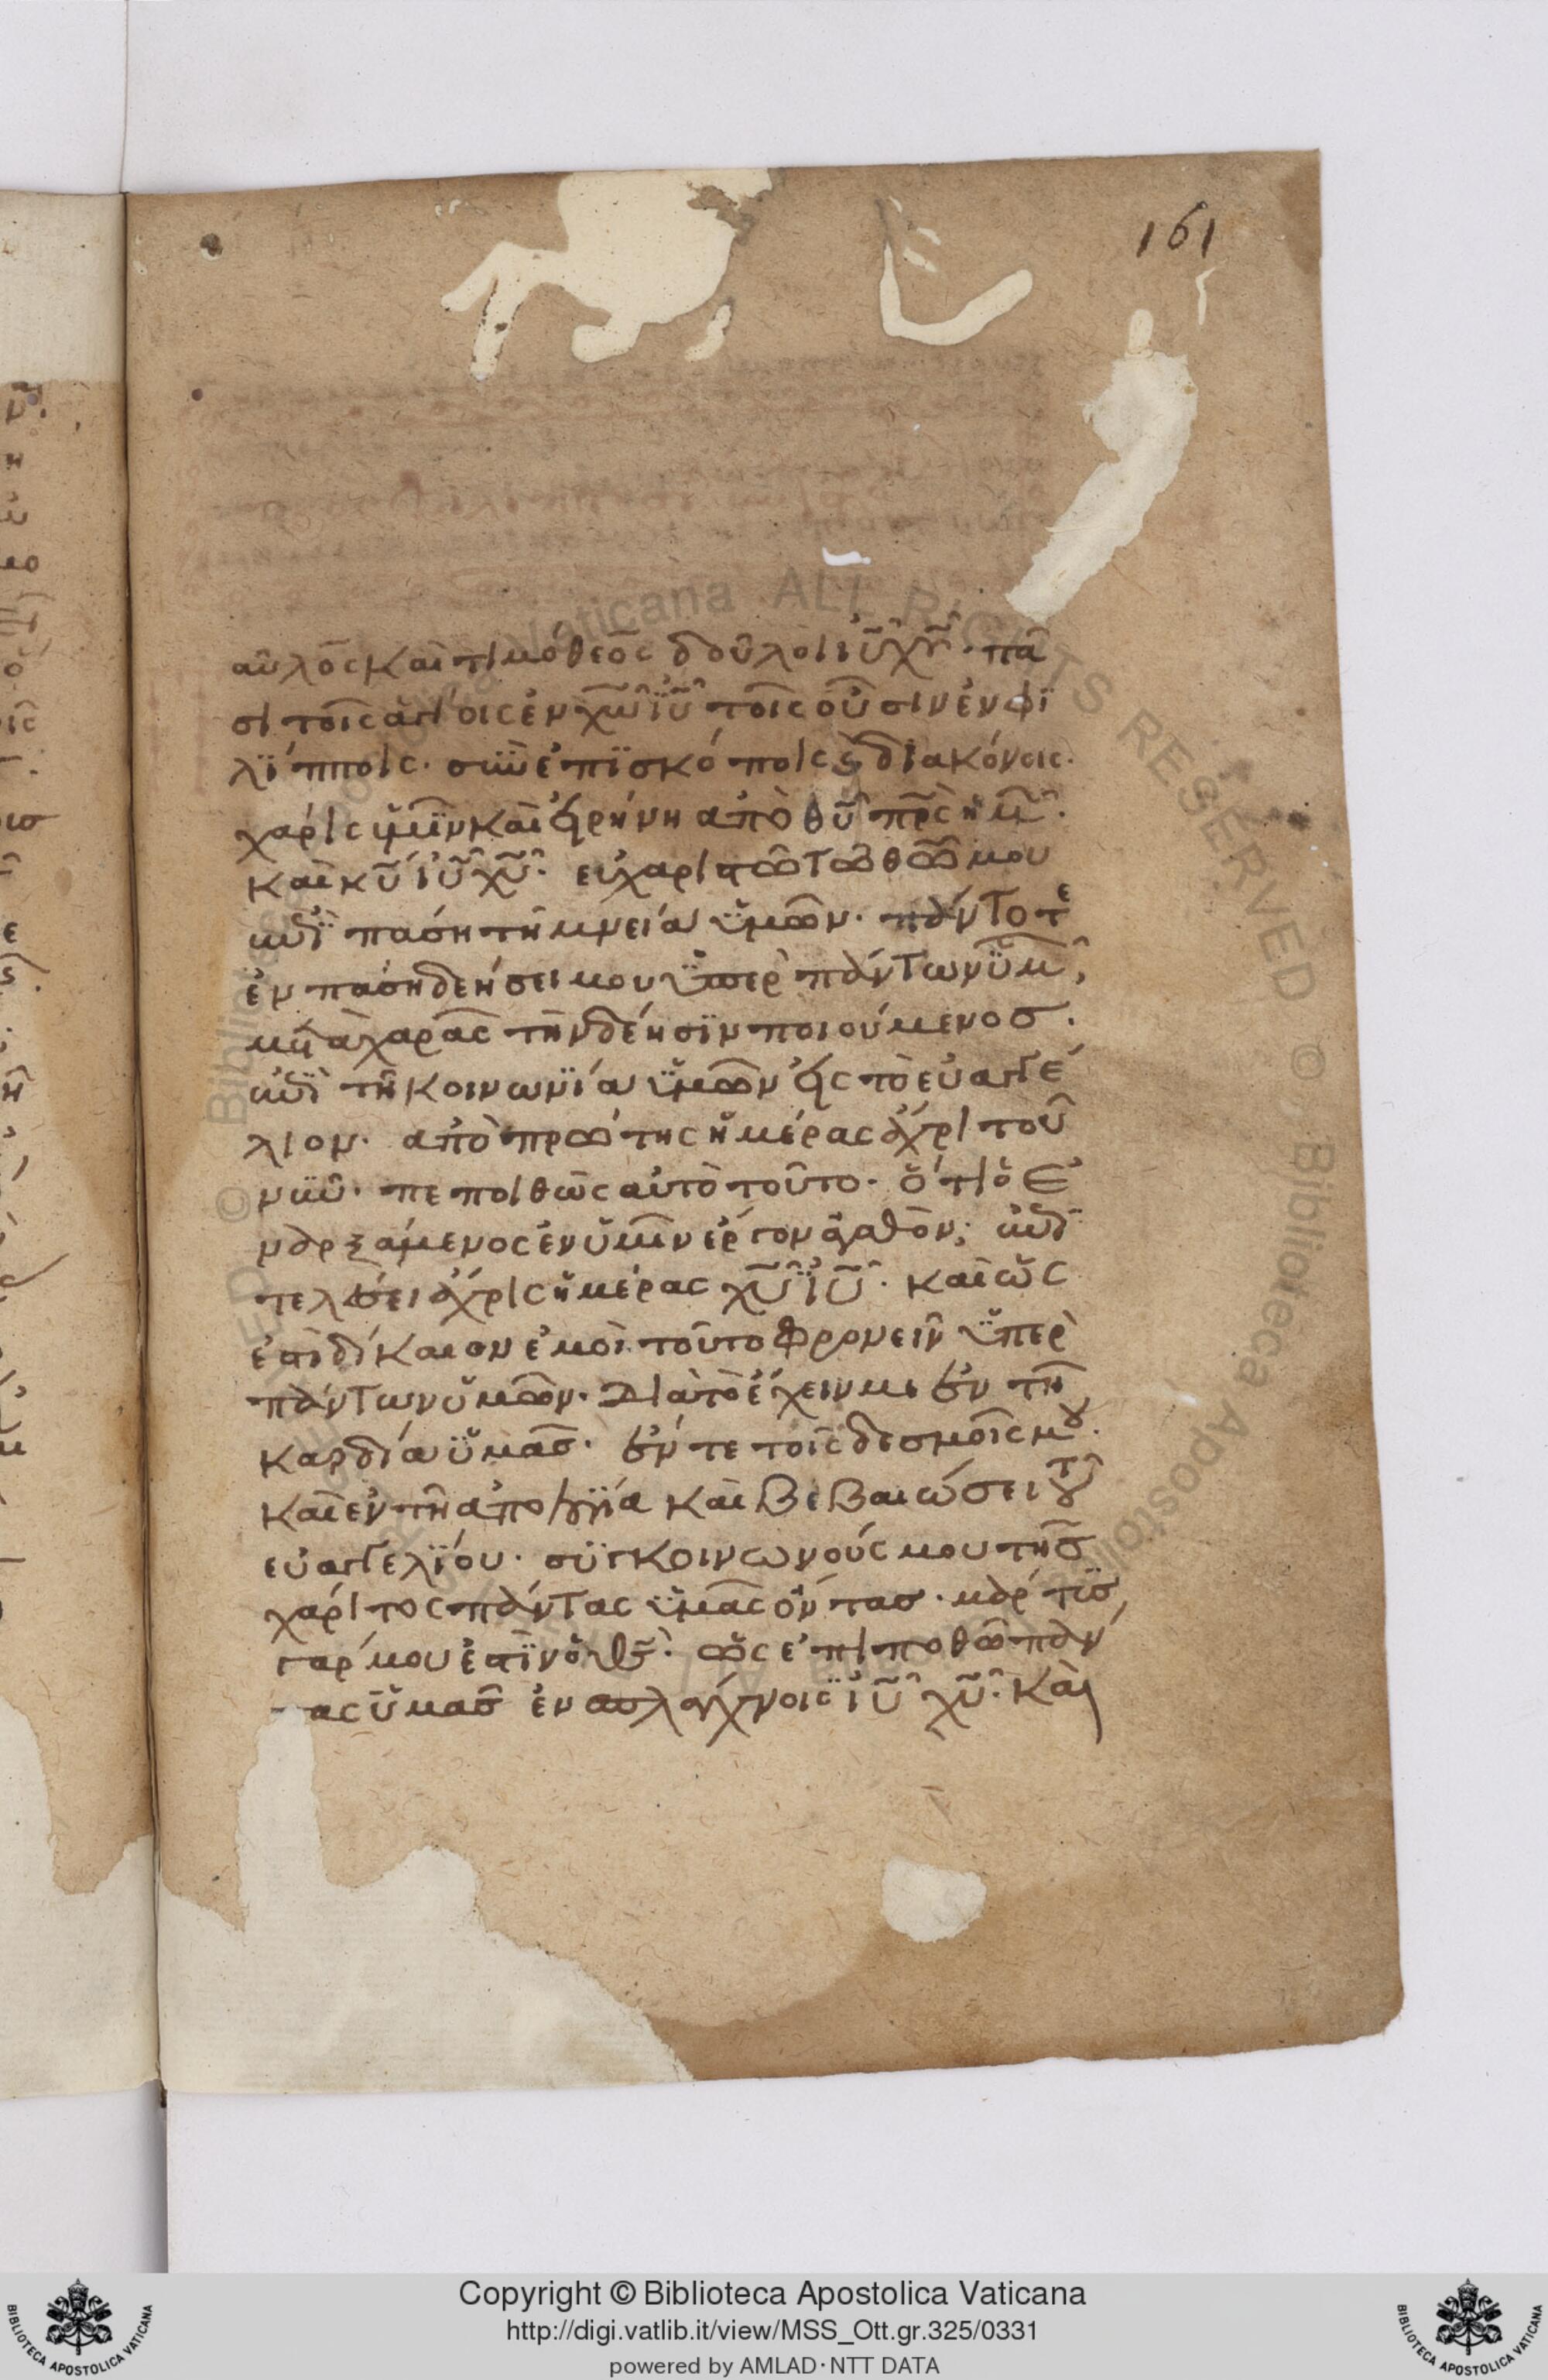 161
αῦλος καὶ τιμόθεος δοῦλοι ιῦ χῦ. πᾶ
σι τοῖς ἁγίοις ἐν χω ιῦ τοῖς οὖσιν ἐν φι
λίπποις. σὺν ἐπισκόποις ϛ διακόνοις.
χάρις ὑμῖν καὶ εἰρήνη ἀπὸ θῦ πρς ἡμ.
καὶ κῦ ιῦ χῦ. εὐχαριστῶ τῶ θεῶ μου
ἐπὶ πάση τῆ μνεία ὑμῶν. πάντοτε
ἐν πάση δεήσει μου ὑπὲρ πάντων ὑμ,
μετὰ χαρᾶς τὴν δέησιν ποιούμενος.
ἐπὶ τῆ κοινωνία ὑμῶν εἰς τὸ εὐαγγέ
λιον. ἀπὸ πρώτης ἡμέρας ἄχρι τοῦ
νῦν. πεποιθὼς αὐτὸ τοῦτο. ὅτι ὁ ἐ
ναρξάμενος ἐν ὑμῖν ἔργον ἀγαθὸν, ἐπι
τελέσει ἄχρις ἡμέρας χῦ ιῦ. καὶ ὡς
ἐστὶ δίκαιον ἐμοὶ τοῦτο φρονεῖν ὑπὲρ
πάντων ὑμῶν. διὰ τὸ ἔχειν με ἐν τῆ
καρδία ὑμᾶς. ἔν τε τοῖς δεσμοῖς μου.
καὶ ἐν τῆ ἀπολογία καὶ βεβαιώσει τοῦ
εὐαγγελίου. συγκοινωνούς μου τῆς
χάριτος πάντας ὑμᾶς ὄντας. μάρτυς
γάρ μου ἐστὶν ὁ θς. ὡς ἐπιποθῶ πάν
τας ὑμᾶς ἐν σπλάγχνοις ιῦ χῦ. καὶ
Copyright © Biblioteca Apostolica Vaticana
http://digi.vatlib.it/view/MSS_Ott.gr.325/0331
powered by AMLAD·NTT DATA
BIBLIOTECA APOSTOLICA VATICANA
BIBLIOTECA APOSTOLICA VATICANA